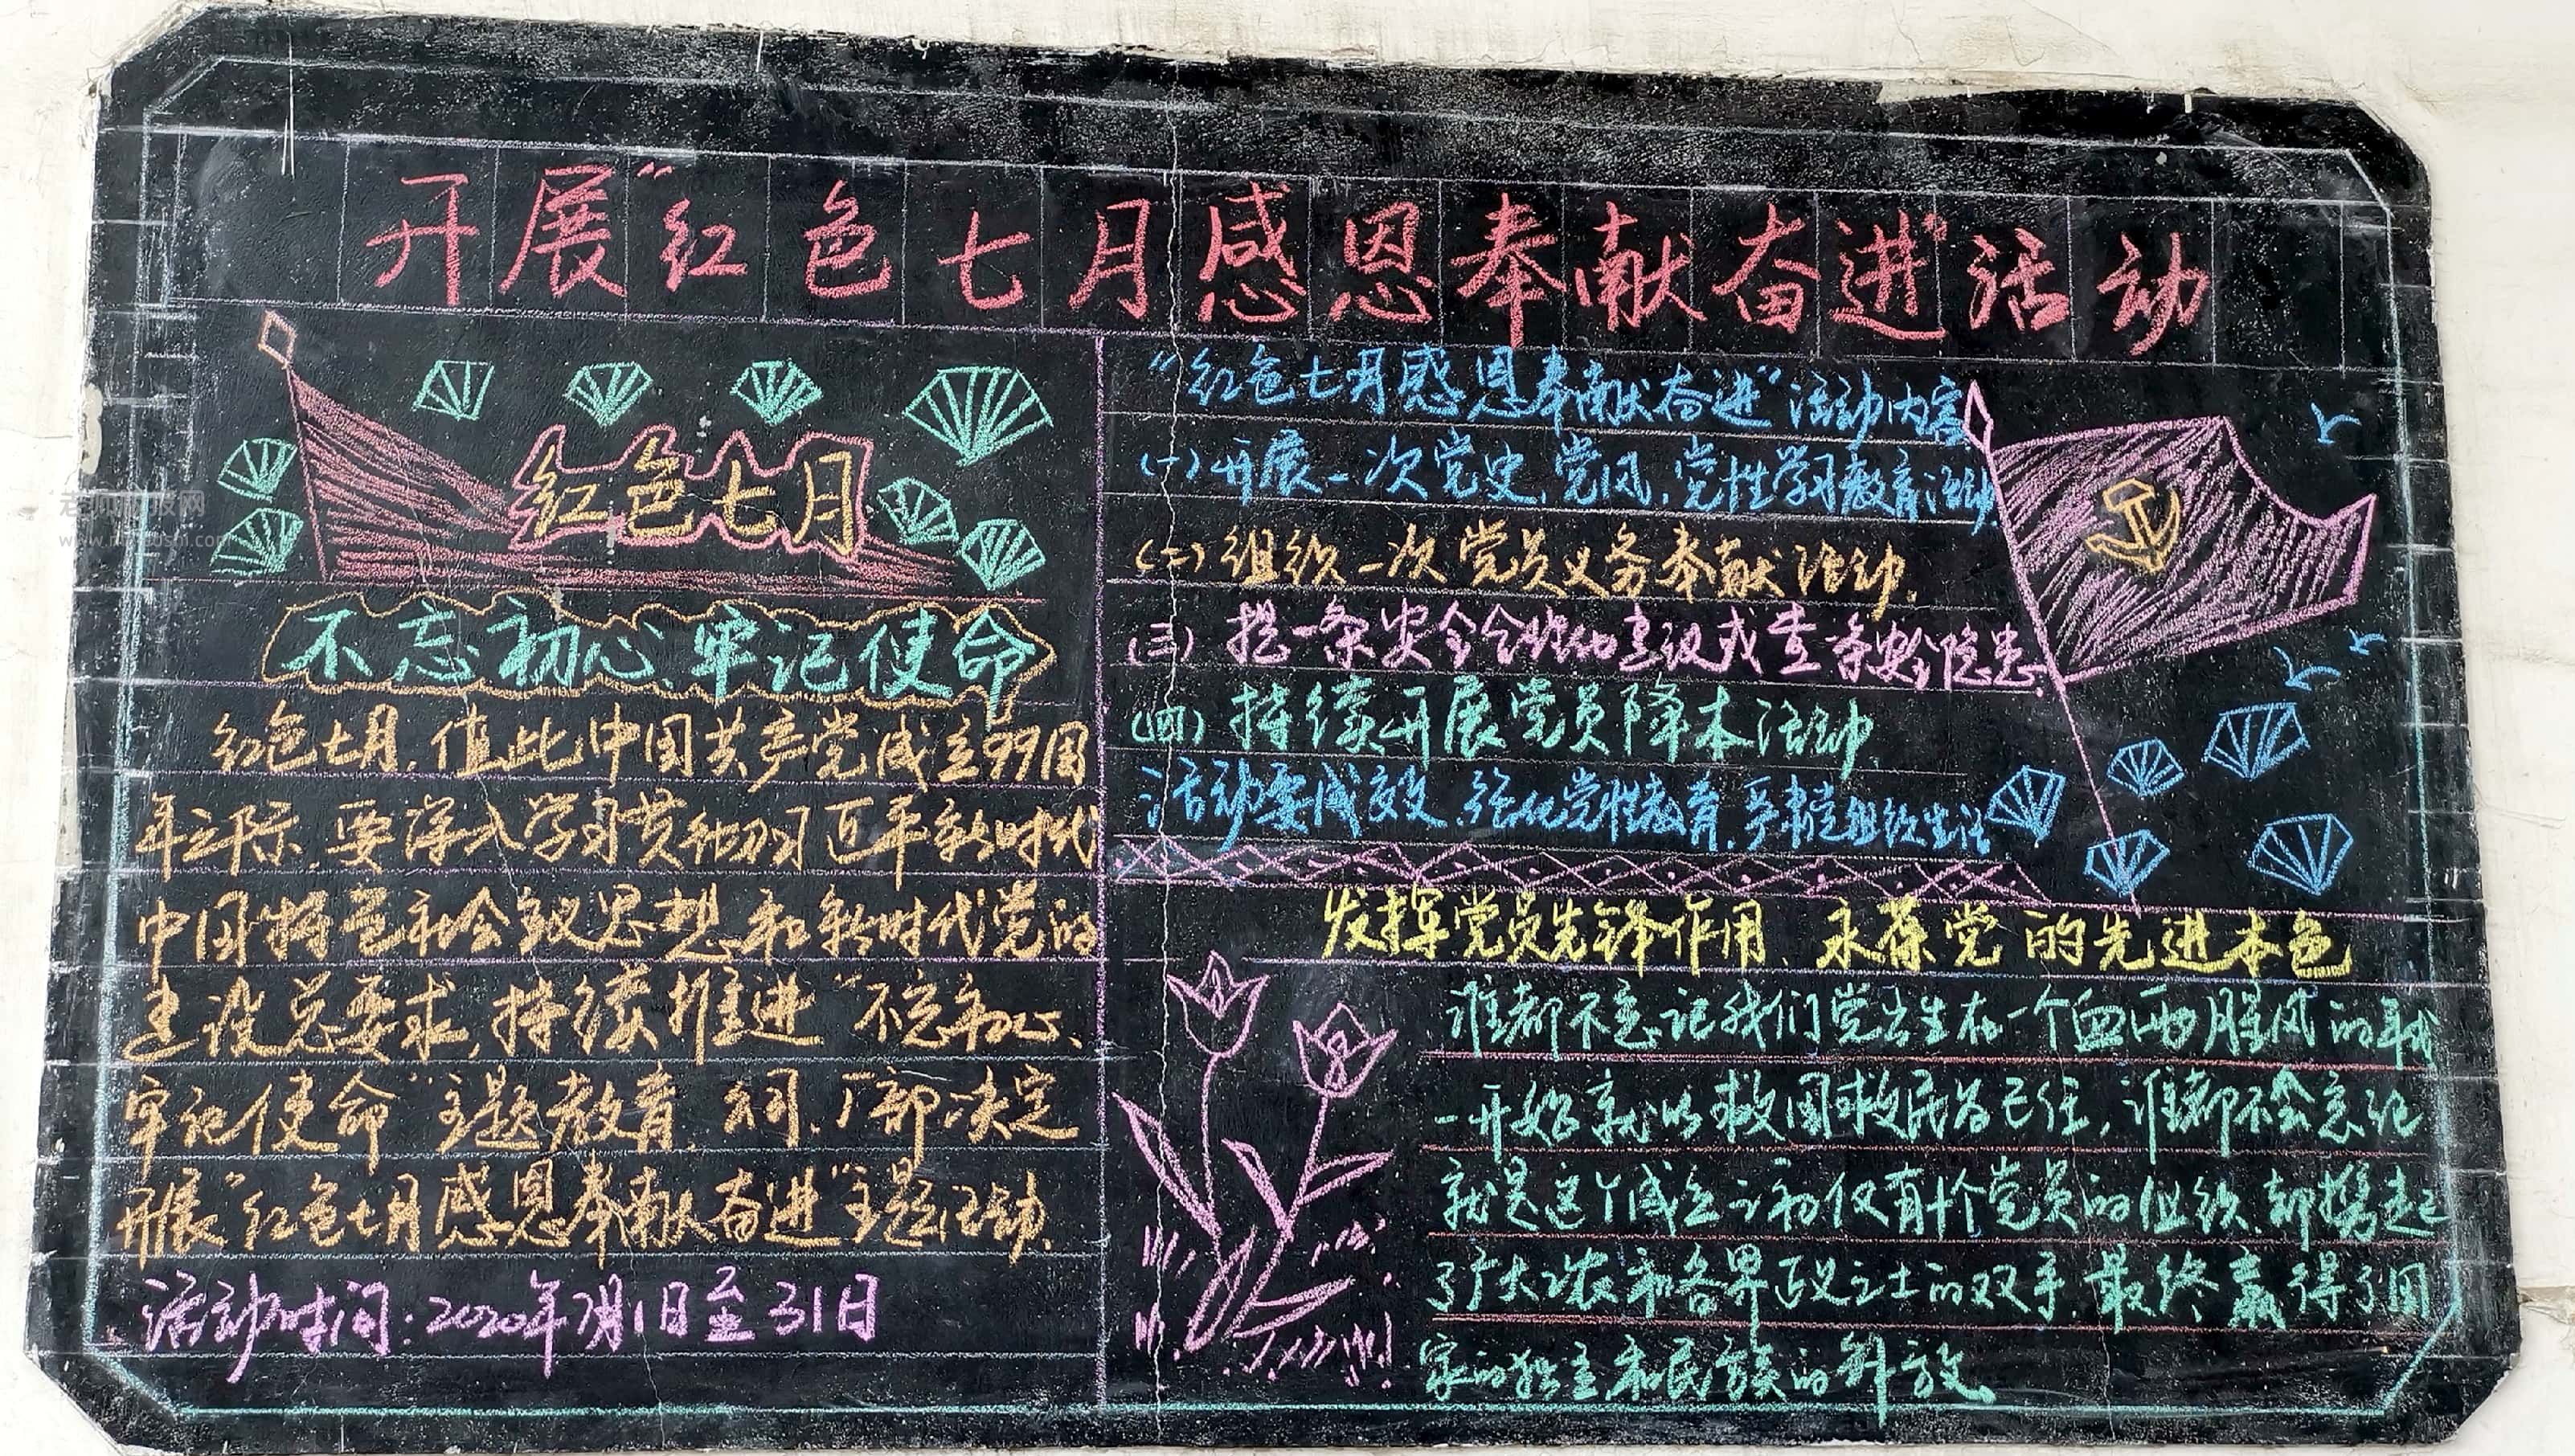 开展"红色七月感恩奉献奋进"活动
红色七月
不忘初心、牢记使命
红色七月,值此中国共产党成立99周
年之际,要深入学习贯彻习近平新时代
中国特色社会主义思想和新时代党的
建设总要求,持续推进"不忘初心、
牢记使命"主题教育,公司、厂部决定
开展"红色七月感恩奉献奋进"主题活动.
活动时间:2020年7月1日至31日
"红色七月感恩奉献奋进"活动内容
(一)开展一次党史、党风、党性学习教育活动.
(二)组织一次党员义务奉献活动.
(三)提一条安全合理化建议或查一条安全隐患.
(四)持续开展党员降本活动.
活动要成效,强化党性教育,严肃党组织生活
发挥党员先锋作用、永葆党的先进本色
谁都不忘记我们党出生在一个血雨腥风的年代
一开始就以救国救民为己任,谁都不会忘记
就是这个成立之初仅有十个党员的组织,却携起
了广大农和各界正义之士的双手,最终赢得了国
家的独立和民族的解放
www.